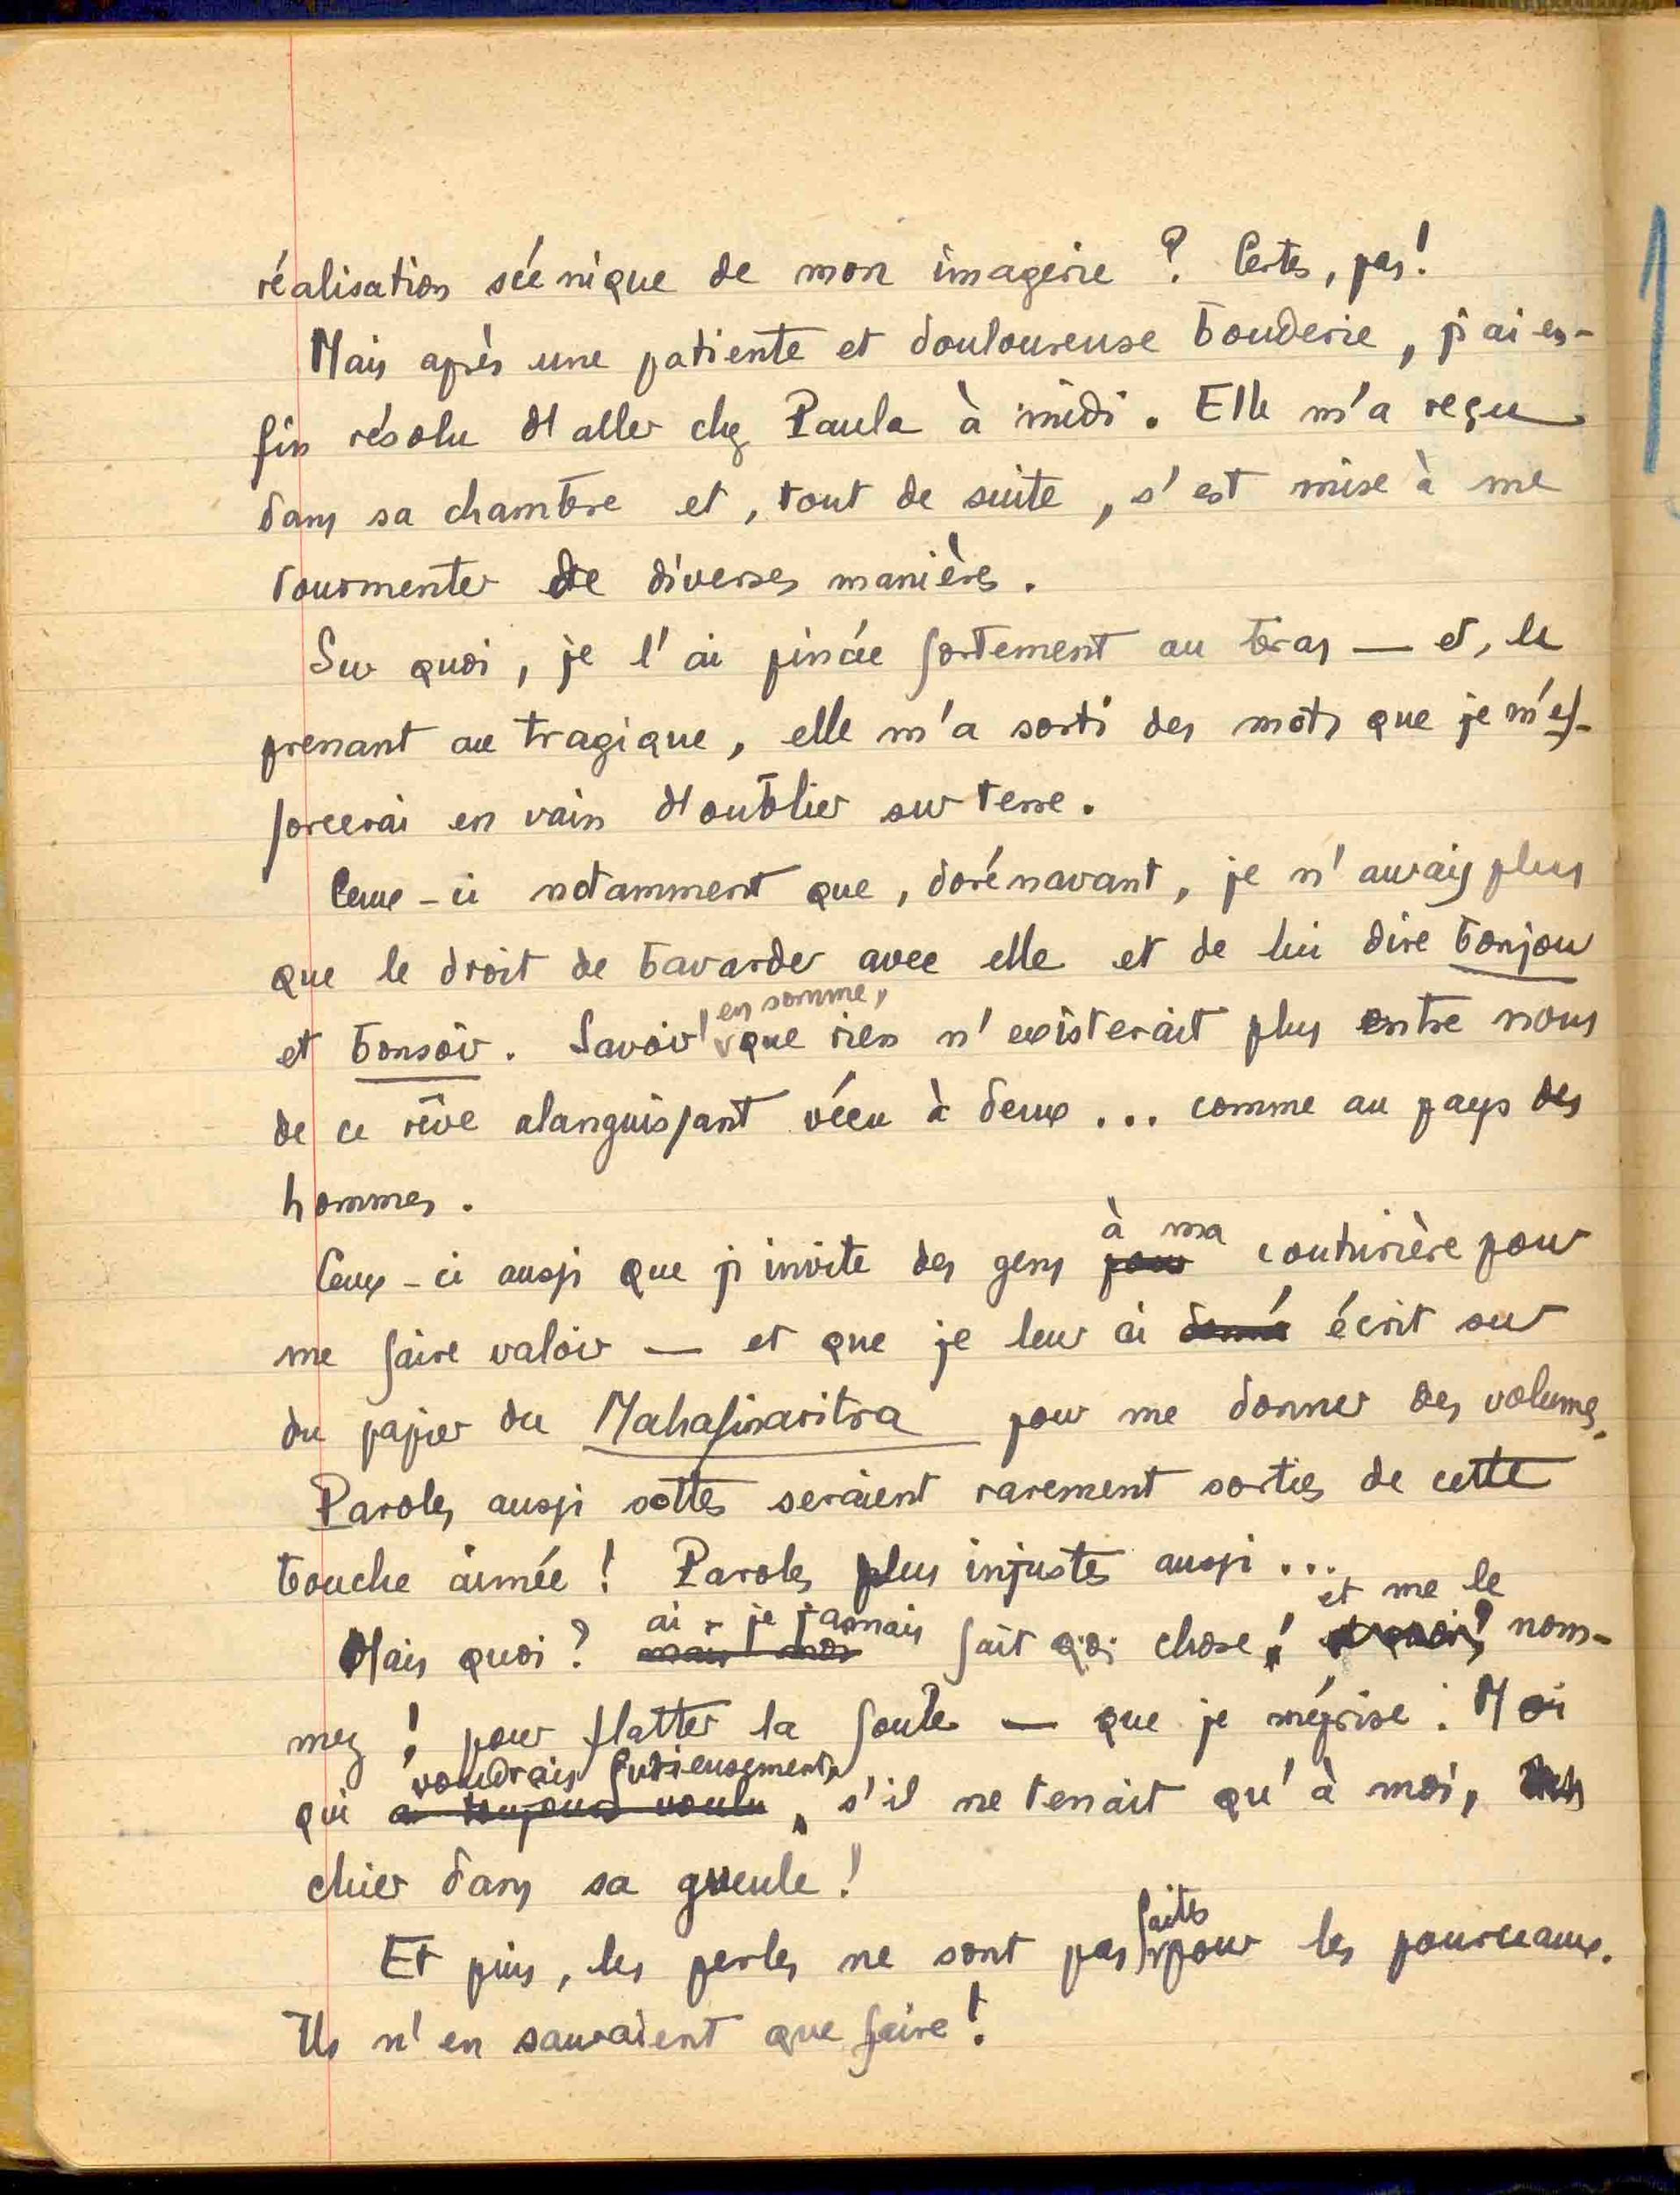 réalisation scénique de mon imagerie ? Certes, pas !
Mais après une patiente et douloureuse bouderie, j'ai en-
fin résolu d'aller chez Paula à midi. Elle m'a reçu
dans sa chambre et, tout de suite, s'est mise à me
tourmenter de diverses manières.
Sur quoi, je l'ai pincée fortement au bras — et, le
prenant au tragique, elle m'a sorti des mots que je m'ef-
forcerai en vain d'oublier sur terre.
Ceux-ci notamment que, dorénavant, je n'aurais plus
que le droit de bavarder avec elle et de lui dire bonjour
et bonsoir. Savoir, en somme, que rien n'existerait plus entre nous
de ce rêve alanguissant vécu à deux... comme au pays des
hommes.
Ceux-ci aussi que j'invite des gens pour à ma couturière pour
me faire valoir — et que je leur ai donné écrit sur
du papier du Mahafinaritra pour me donner des volumes.
Paroles aussi sottes seraient rarement sorties de cette
bouche aimée ! Paroles plus injustes aussi...
Mais quoi ? mais moi ai-je jamais fait qq; chose ! et quoi ? et me le nom-
mez ! pour flatter la foule — que je méprise : Moi
qui a toujours voulu voudrais furieusement, s'il ne tenait qu'à moi,
chier dans sa gueule !
Et puis, les perles ne sont pas faites pour les pourceaux.
Ils n'en sauraient que faire !